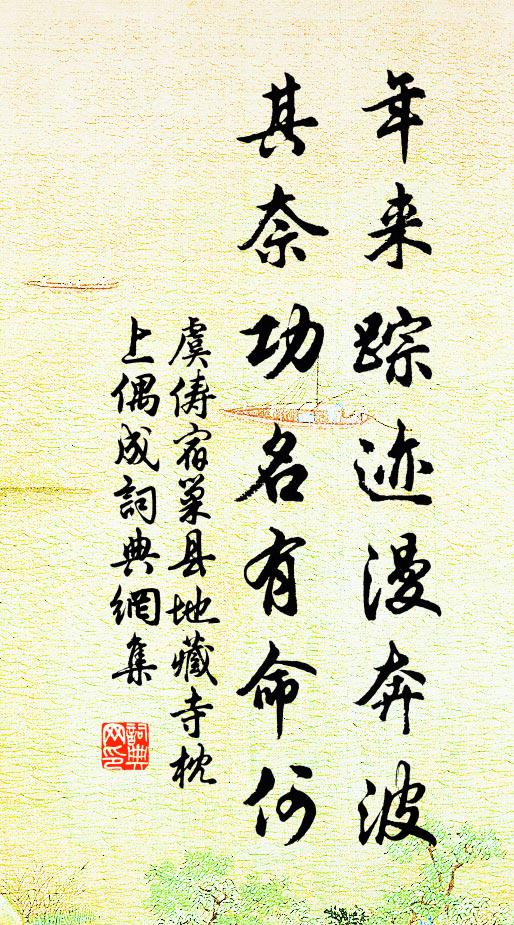 年来踪迹漫奔波
其奈功名有命何
虞俦宿巢县地藏寺枕
上偶成詞典網集
詞典
网印